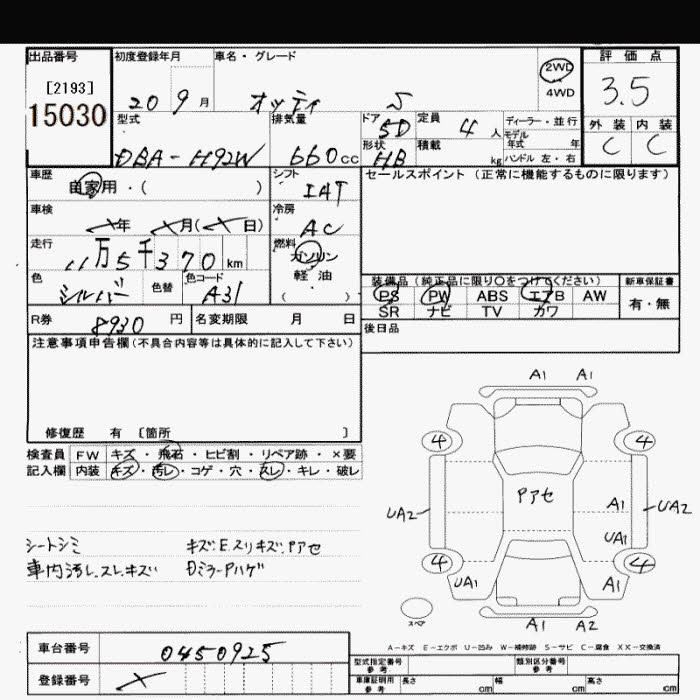 出品番号 初度登録年月 車名・グレード 2WD 評価点
[2193] 4WD 3.5
15030 20 9月 オッティ S
型式 排気量 ドア 定員 ディーラー・並行 外装 内装
5D 4人 モデル年式 年 C C
DBA-H92W 660cc 形状 HB 積載 kg ハンドル 左・右
車歴 自家用・( ) シフト IAT セールスポイント(正常に機能するものに限ります)
車検 年 月( 日) 冷房 AC
走行 11万5千370km 燃料 ガソリン
色 シルバー 色替 色コード A31 軽・油 ( )
装備品(純正品に限り○をつけてください) 新車保証書
PS PW ABS エアB AW 有・無
SR ナビ TV カワ
R券 8930円 名変期限 月 日 後日品
注意事項申告欄(不具合内容等は具体的に記入して下さい)
修復歴 有 〔箇所 〕
検査員 FW キズ・飛石・ヒビ割・リペア跡・×要
記入欄 内装 キズ・汚レ・コゲ・穴・スレ・キレ・破レ
A1 A1
4 4
Pアセ
UA2 A1 UA2
UA1
4 4
UA1 A1
スペア A1 A2
シートシミ キズ.E.スリキズ.Pアセ
車内汚レ.スレ.キズ Dミラーハゲ
A-キズ E-エクボ U-凹み W-補修跡 S-サビ C-腐食 XX-交換済
車台番号 0450925
登録番号
型式指定番号 参考 類別区分番号 参考
車庫証明用 参考 長さ cm 幅 cm 高さ cm